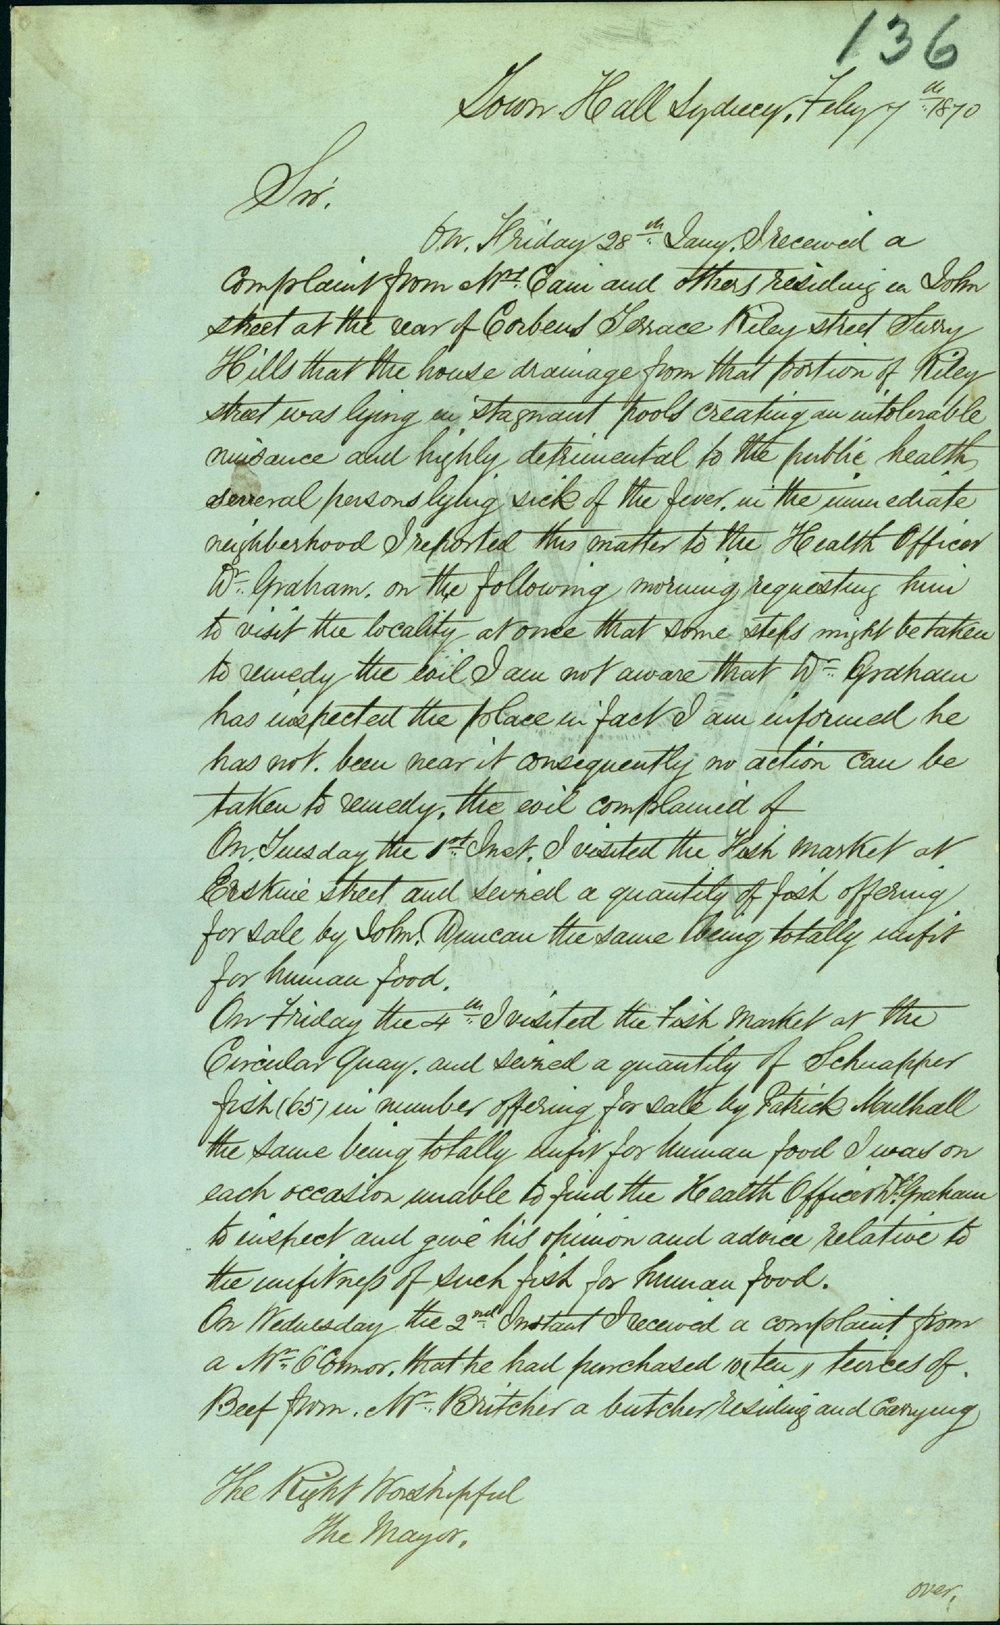 136
Town Hall Sydney, Feby 7th 1870
Sir.
On. Friday 28th Jany. I received a
complaint from Mrs. Cain and others residing in John
street at the rear of Corbens Terrace Riley street Surry
Hills that the house drainage from that portion of Riley
street was lying in stagnant pools creating an intolerable
nuisance and highly detrimental to the public health
several persons lying sick of the fever. in the immediate
neighborhood I reported this matter to the Health Officer
Dr. Graham. on the following morning requesting him
to visit the locality at once that some steps might be taken
to remedy the evil I am not aware that Dr. Graham
has inspected the place in fact I am informed he
has not. been near it consequently no action can be
taken to remedy, the evil complained of
On, Tuesday the 1st Inst. I visited the Fish Market at
Erskine street and seized a quantity of fish offering
for sale by John. Duncan the same being totally unfit
for human food.
On Friday the 4th I visited the Fish Market at the
Circular Quay. and seized a quantity of Schnapper
fish (65) in number offering for sale by Patrick Mulhall
the same being totally unfit for human food I was on
each occasion unable to find the Health Officer Dr. Graham
to inspect and give his opinion and advice relative to
the unfitness of such fish for human food.
On Wednesday the 2nd Instant I received a complaint from
a Mr. O'Connor. that he had purchased ten tierces of.
Beef from. Mr. Britcher a butcher residing and Carrying
The Right Worshipful
The Mayor.
over.